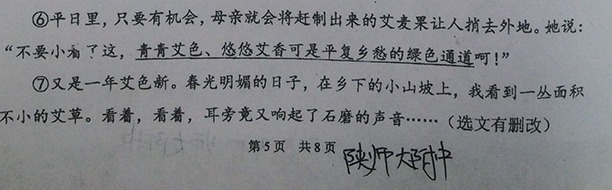 ⑥平日里，只要有机会，母亲就会将赶制出来的艾麦果让人捎去外地。她说：
“不要小看了这，青青艾色、悠悠艾香可是平复乡愁的绿色通道呵！”
⑦又是一年艾色新。春光明媚的日子，在乡下的小山坡上，我看到一丛面积
不小的艾草。看着，看着，耳旁竟又响起了石磨的声音……（选文有删改）
第5页 共8页
陕师大附中